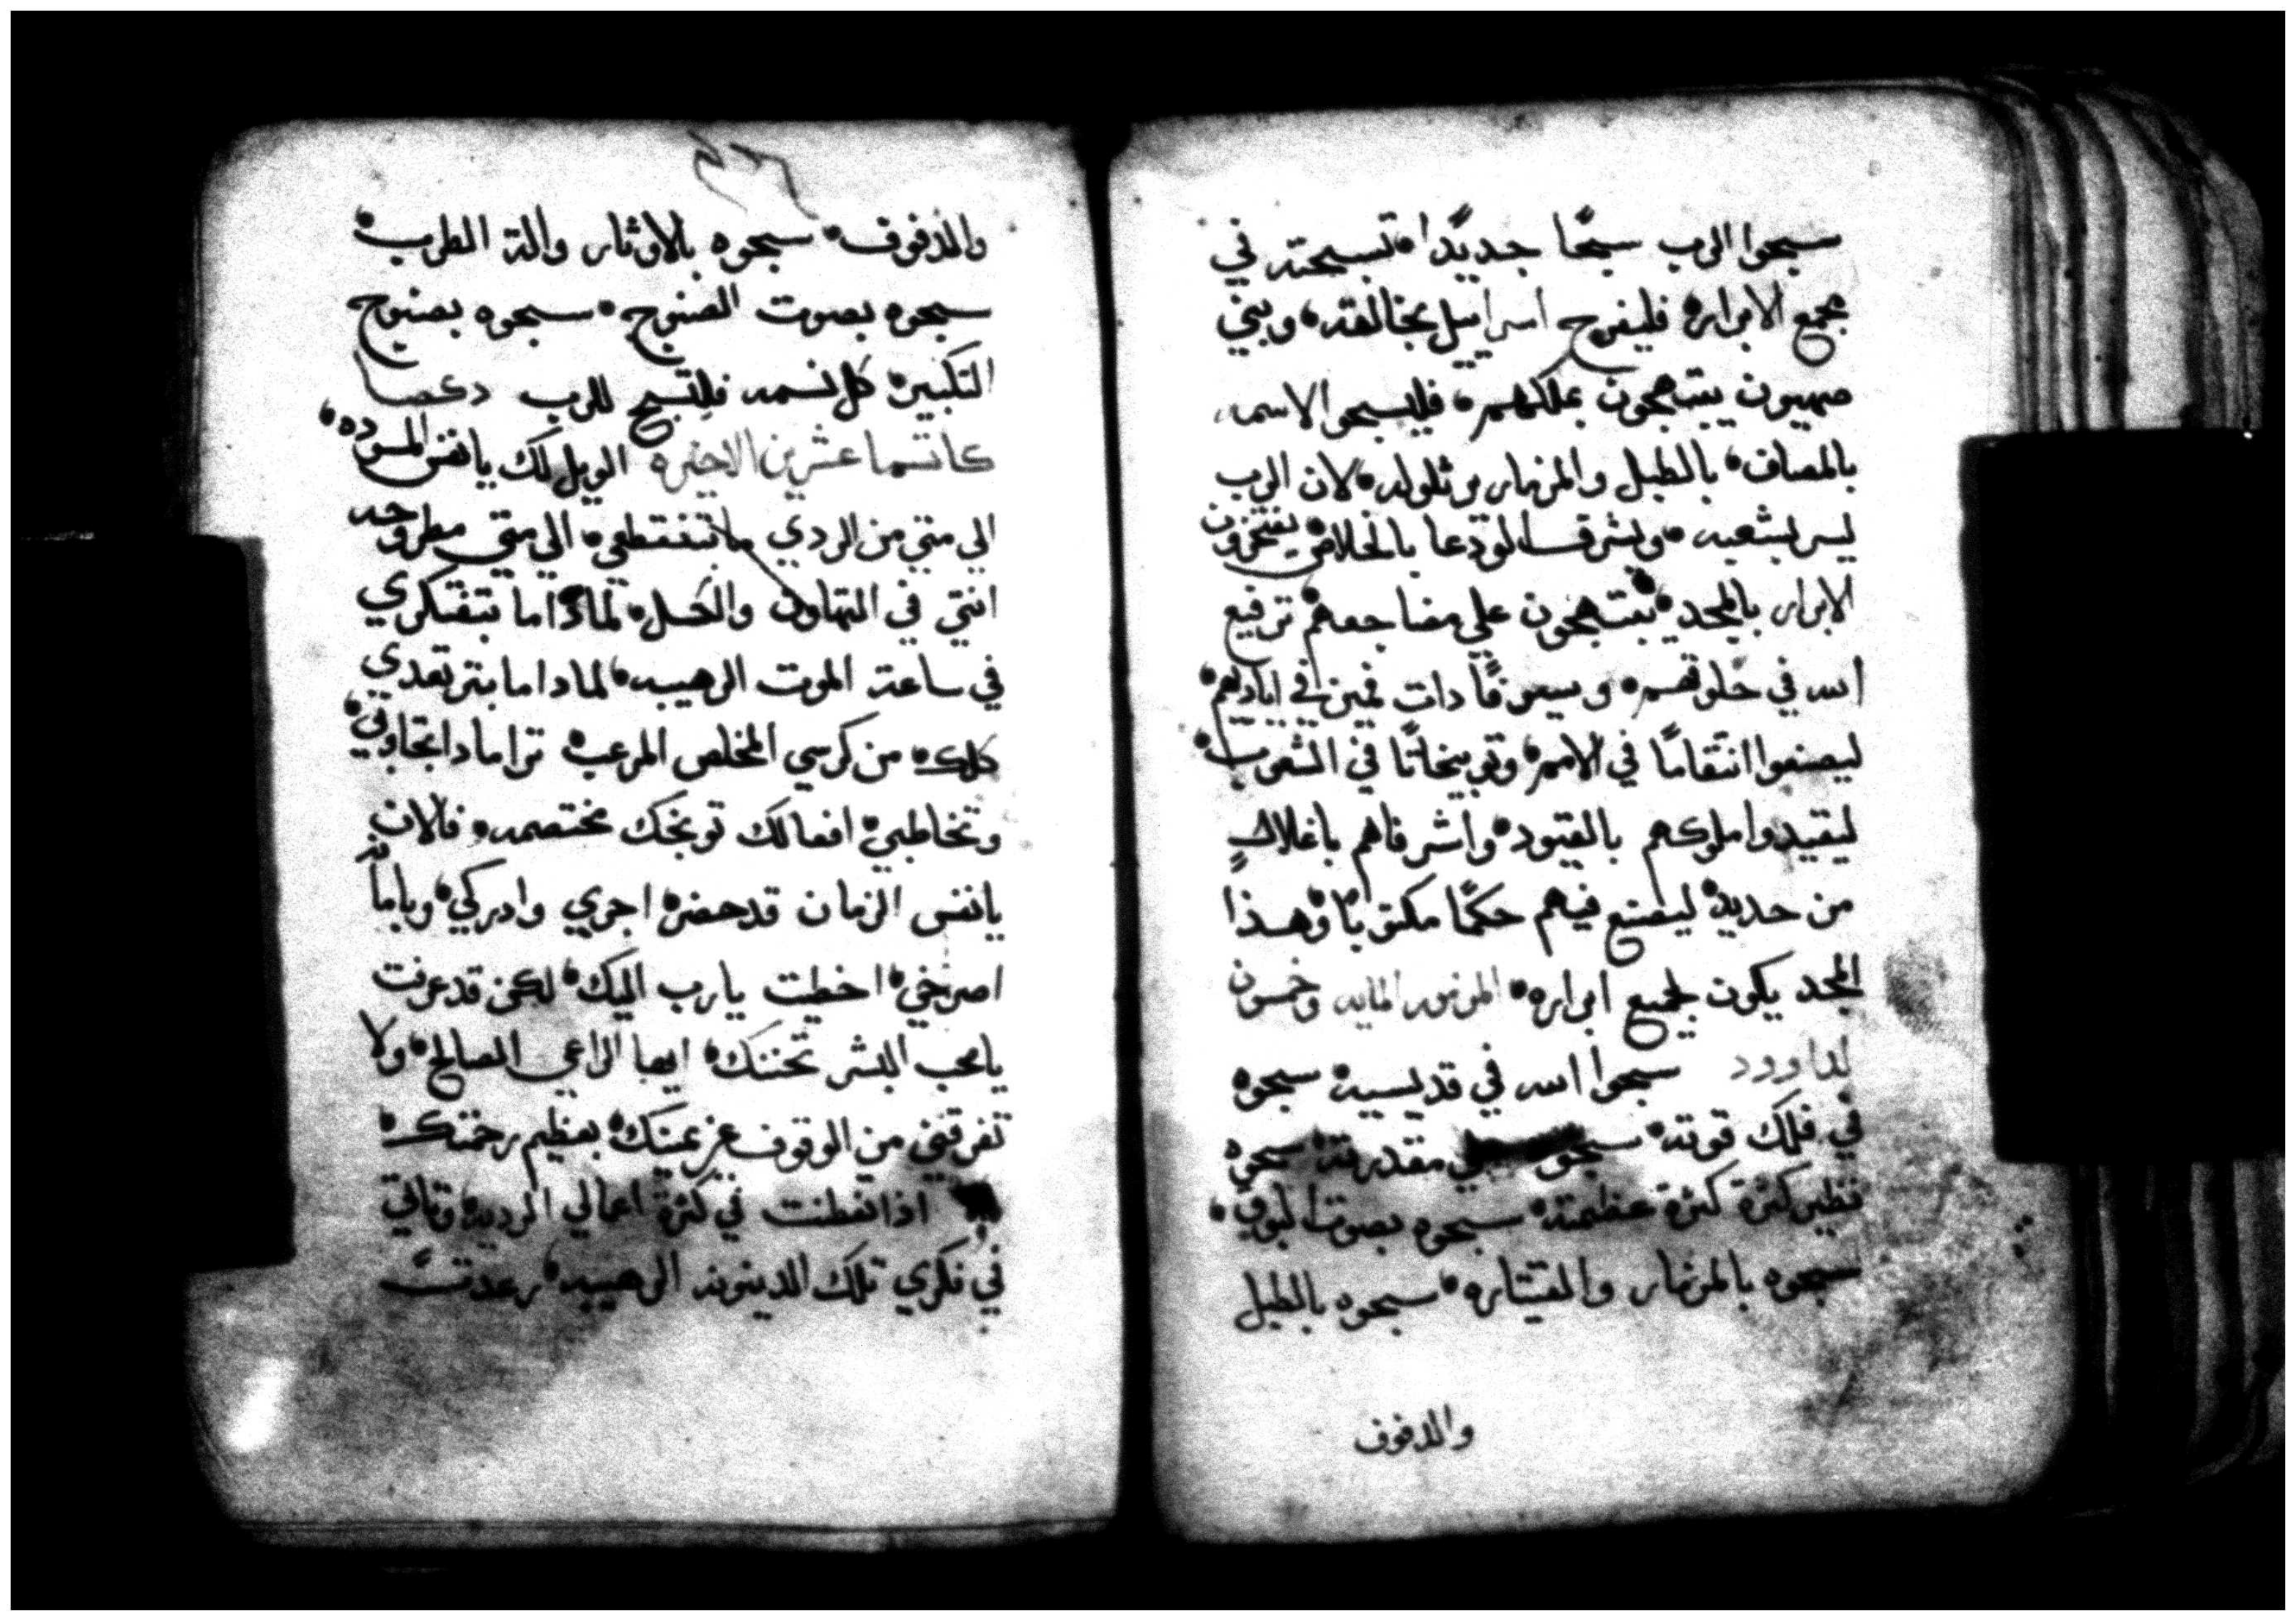 سبحوا الرب سبحًا جديدًا تسبيحته في
مجمع الابراره فليفرح اسراييل بخالقه، وبني
صهيون يبتهجون بملكهم، فليسبحوا لاسمه،
بالمصاف، بالطبل والمزمار يرتلوا له، لان الرب
يسر بشعبه، ويشرف الودعا بالخلاص يفتخرون
الابرار بالمجد، يبتهجون علي مضاجعهم ترفيع
الله في حلوقهم، وسيوفًا دات فمين في اياديهم،
ليصنعوا انتقامًا في الامم، وتوبيخاتًا في الشعوب،
ليقيدوا ملوكهم بالقيود، واشرفاهم باغلالٍ
من حديد، ليصنع فيهم حكمًا مكتوبًا وهذا
المجد يكون لجميع ابراره، المزمور المايه وخمسون
لداوود سبحوا الله في قديسيه، سبحوه
في فلك قوته، سبحوه في مقدرته، سبحوه
نظير كثرة كثرة عظيمته، سبحوه بصوت البوق،
سبحوه بالمزمار والقيتاره، سبحوه بالطبل
والدفوف
والدفوف، سبحوه بالاوثار والة الطرب،
سبحوه بصوت الصنوج، سبحوه بصنوج
التكبير، كل نسمه فلتسبح للرب
الاخيره الويل لك يا نفس المسوده،
الي متي من الردي ما تنفتطمي، الي متي مطروحه
انتي في التهاون والكسل، لماذا ما بتفتكري
في ساعة الموت الرهيبه، لمادا ما بترتعدي
كلك، من كرسي المخلص المرعب، ترا مادا بتجاوبي،
وتخاطبي، افعالك توبخك مختصمه، فالان
يا نفس الزمان قد حضر، اجري وادركي، وبامانه
اصرخي، اخطيت يا رب اليك، لكن قد عرفت
يا محب البشر تحننك، ايها الراعي الصالح، ولا
تفرقني من الوقوف عن يمينك، بعظيم رحمتك،
اذا تفطنت في كثرة اعمالي الرديه، وتاتي
في فكري تلك الدينونه الرهيبه، رعدتٌ